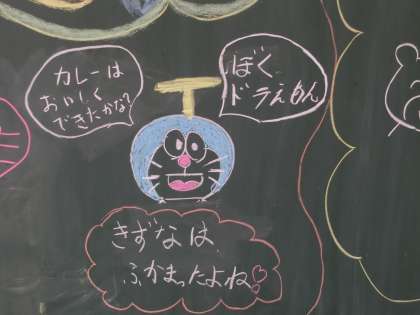 カレーは
おいしく
できたかな?
ぼく
ドラえもん
きずなは
ふかまったよね